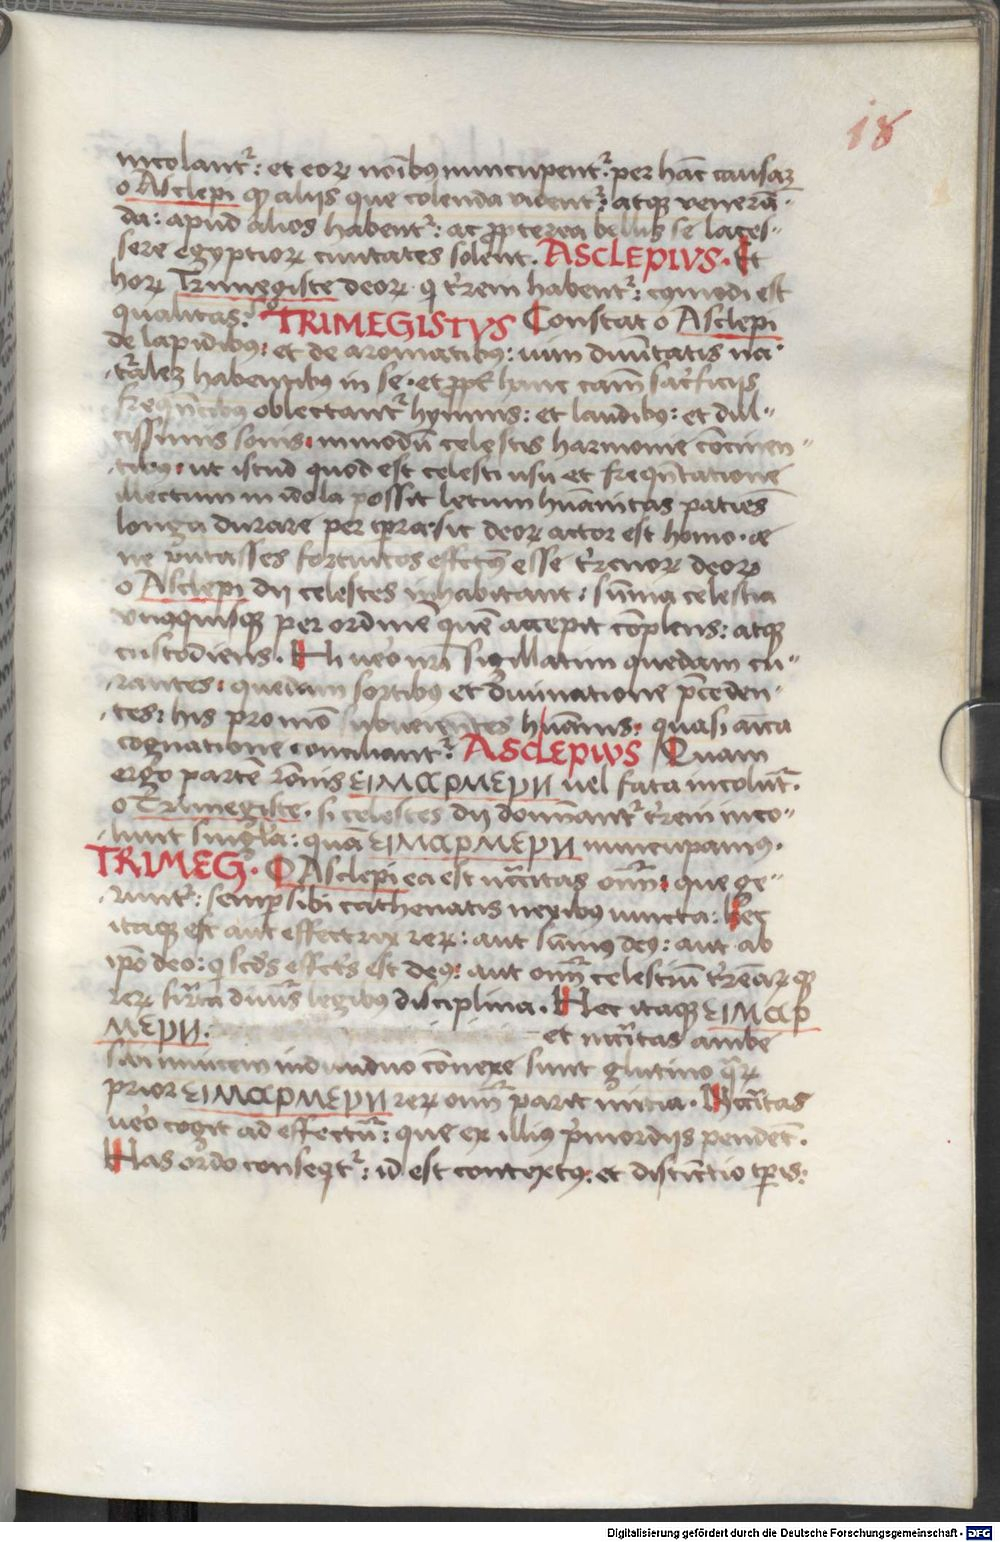 18
incolant᷑: et eoꝝ noı̄bꝰ nuncupent᷑. per hāc causaꝫ
o Asclepi ꝙ aliis que colenda uident᷑: atqꝫ venerā-
da: apud alios habent᷑: ac ꝓpterea bellis se laces-
sere egyptioꝝ ciuitates solent. ASCLEPIVS. Et
hoꝝ Trimegiste deoꝝ q t̓rem habent᷑: cꝰmodi est
qualitas? TRIMEGISTVS Constat o Asclepi
de lapidibꝰ: et de aromatibꝰ: uim diuı̄tatis na-
t̓aleꝫ habentibꝰ in se. et ꝓpt̓ hanc cām̄ sac̓ficiis
freqn̄tibꝰ oblectant᷑ hymnis: et laudibꝰ: et dul-
cissimis sonis: in modū celestis harmonie cōcinen-
tibꝰ: ut istud quod est celesti usu et freqn̄tatione
illectum in idola possit letum hūanitas patiēs
longa durare per tp̄ra. sic deoꝝ actor est homo. &
ne putasses fortuitos effectꝰ esse t̓renoꝝ deoꝝ
o Asclepi dii celestes inhabitant: sūma celestia
vnusquisqꝫ per ordinē quē accepit cōplens: atqꝫ
custodiens. Hi uero nr̄i sigillatim quedam cu-
rantes: quedam sortibꝰ et diuinatione p̄ceden-
tes: his pro mō subuenientes hūanis: quasi aı̄ca
cognatione conciliant᷑. ASCLEPIVS Quam
ergo partē rōnis ΕΙΜΑΡΜΕΡΗ uel fata incolūt.
o Trimegiste. si celestes dii donn̄ant᷑ t̓reni inco-
lunt singl̓a: quā ΕΙΜΑΡΜΕΡΗ nuncupamus.
TRIMEG. O Asclepi ea est nc̄citas oīm: que ge-
runt᷑: semp̱ sibi cathenatis nexibus uincta: hec
itaqꝫ est aut effectrix reꝝ: aut sūmꝰ deꝰ: aut ab
ipo deo: q scd̓s effcs̄ est deꝰ: aut oīm celestiū t̓reāꝝqꝫ
reꝝ firmata diuis̄ legibus disciplina. Hec itaqꝫ ΕΙΜΑΡ
ΜΕΡΗ. - et nc̄citas ambe
sui inuicem indiuiduo cōnexe sunt glutino qr̄ꝝ
prior ΕΙΜΑΡΜΕΡΗ reꝝ oīm parit initia. Nc̄citas
uero cogit ad effectū: que ex illiꝰ p̄mordiis pendēt.
Has ordo conseqt᷑: id est contextꝰ: et distīctio tp̄is:
Digitalisierung gefördert durch die Deutsche Forschungsgemeinschaft - DFG